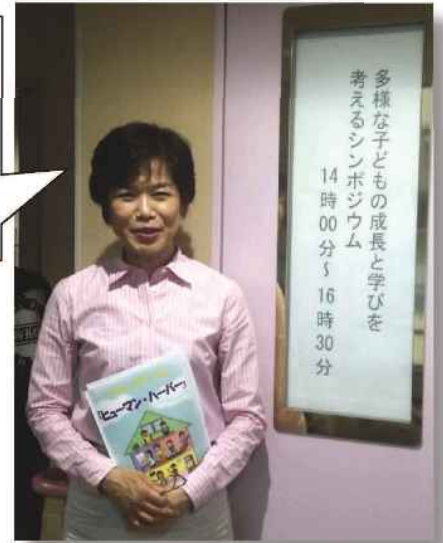 多様な子どもの成長と学びを
考えるシンポジウム
14時00分〜16時30分
「ヒューマン・ハーバー」